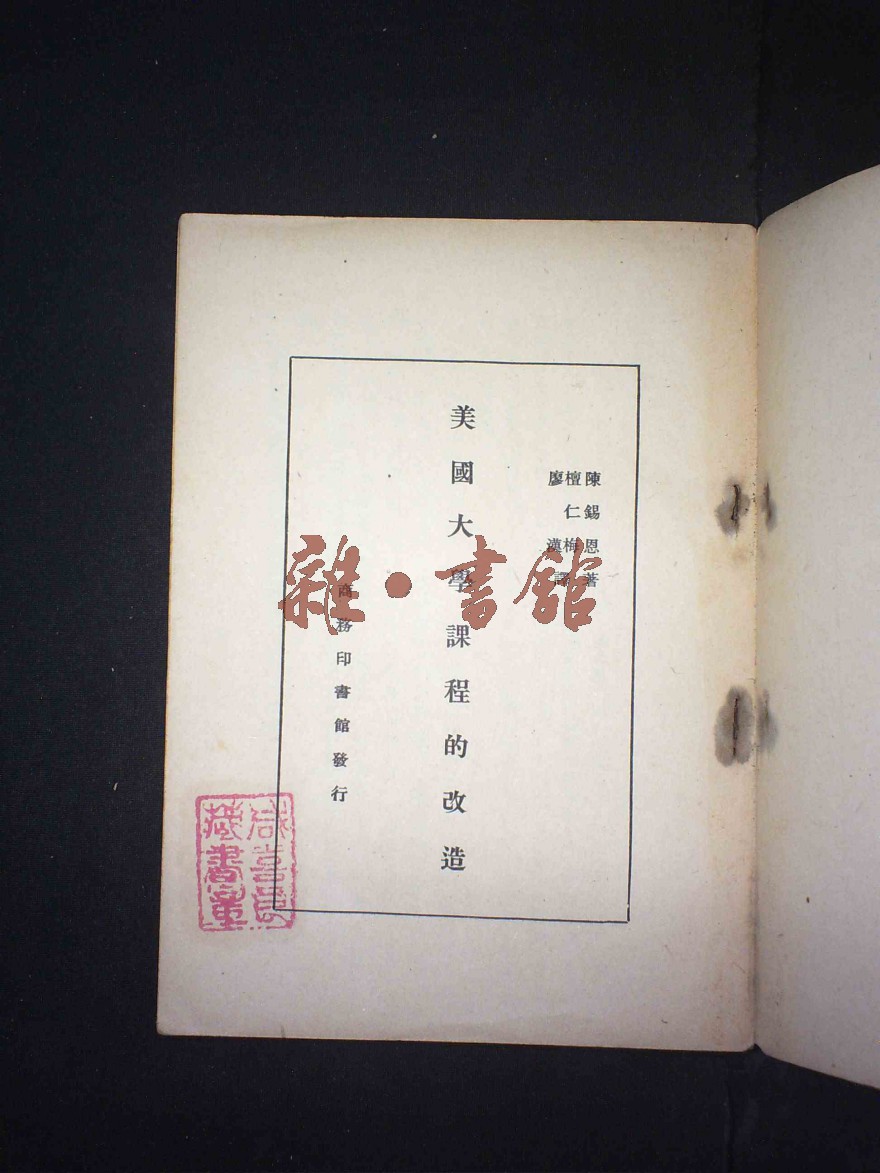 陳錫恩著
檀仁梅
廖　漢
譯
美國大學課程的改造
商務印書館發行
雜·書館
藏書章